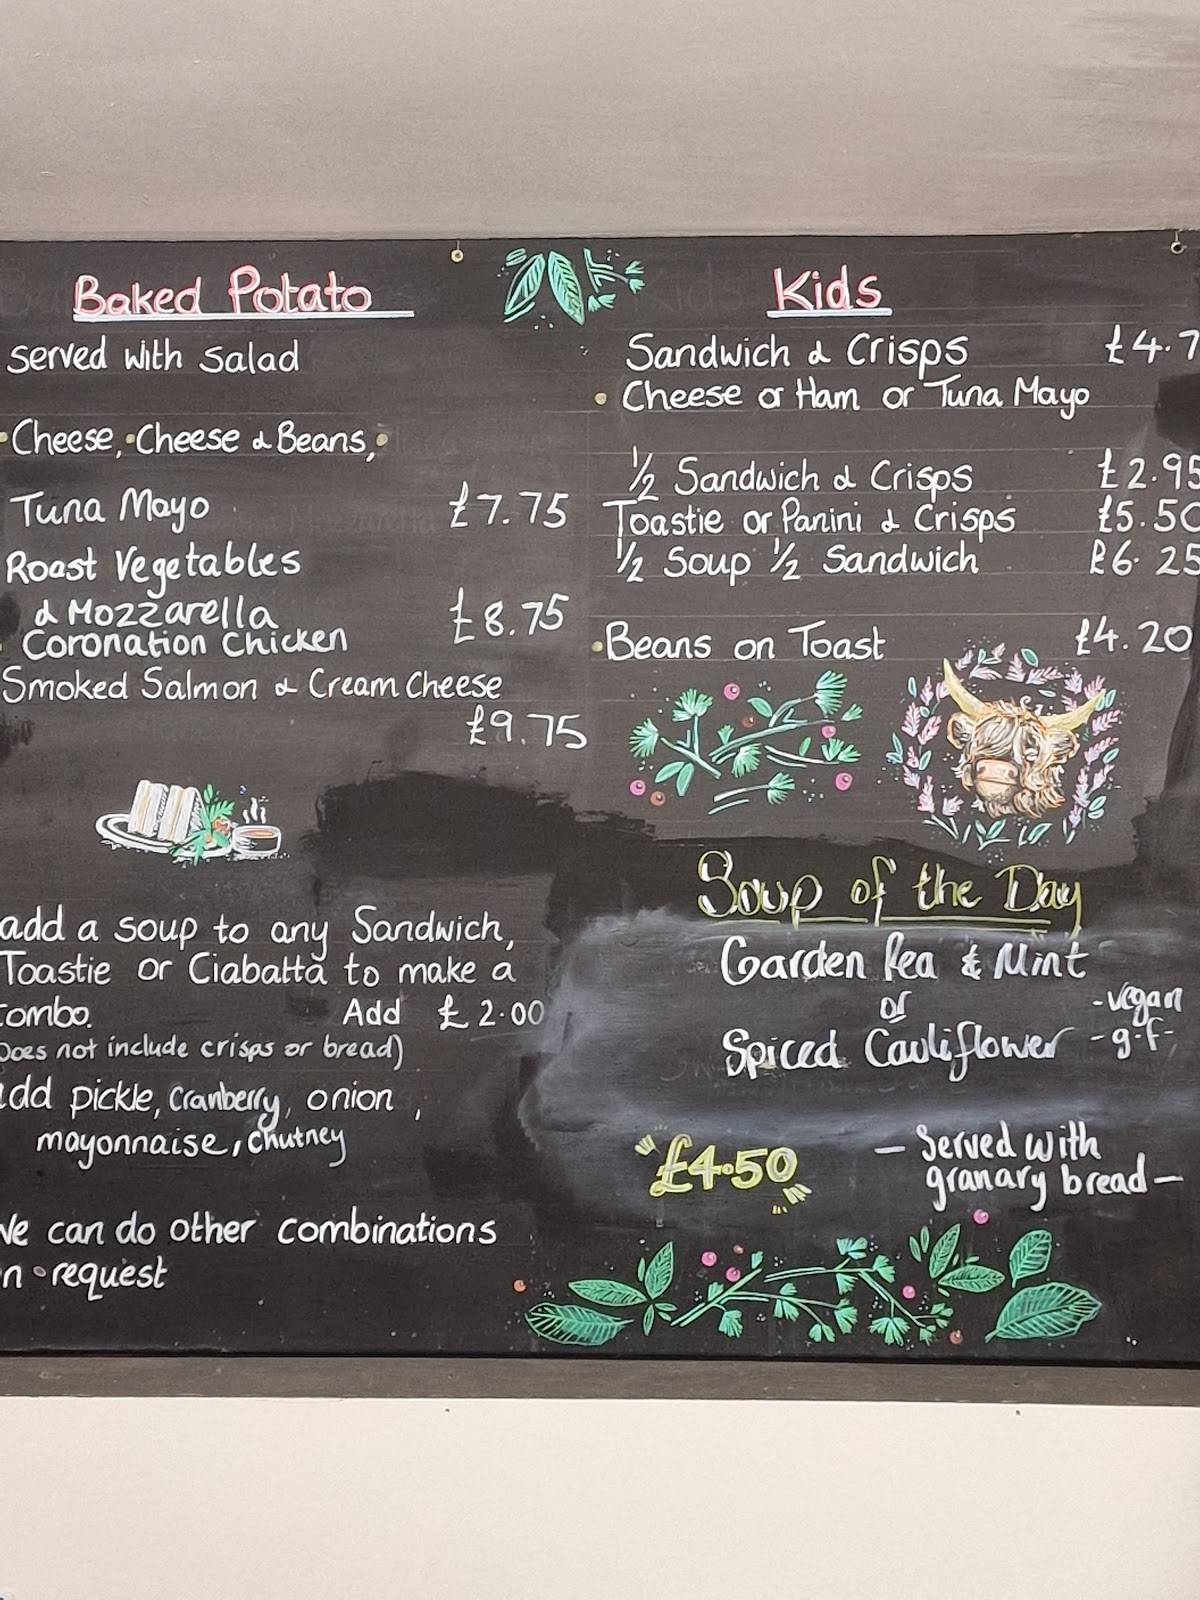 Baked Potato
Served with Salad
Cheese, Cheese & Beans,
Tuna Mayo £7.75
Roast Vegetables
& Mozzarella £8.75
Coronation Chicken
Smoked Salmon & Cream Cheese
£9.75
add a soup to any Sandwich,
Toastie or Ciabatta to make a
combo. Add £2.00
(Does not include crisps or bread)
add pickle, cranberry, onion,
mayonnaise, chutney
We can do other combinations
on request
Kids
Sandwich & Crisps £4.7
Cheese or Ham or Tuna Mayo
1/2 Sandwich & Crisps £2.95
Toastie or Panini & Crisps £5.50
1/2 Soup 1/2 Sandwich £6.25
Beans on Toast £4.20
Soup of the Day
Garden Pea & Mint
or
Spiced Cauliflower
-vegan
-g.f-
£4.50
- Served with
granary bread -